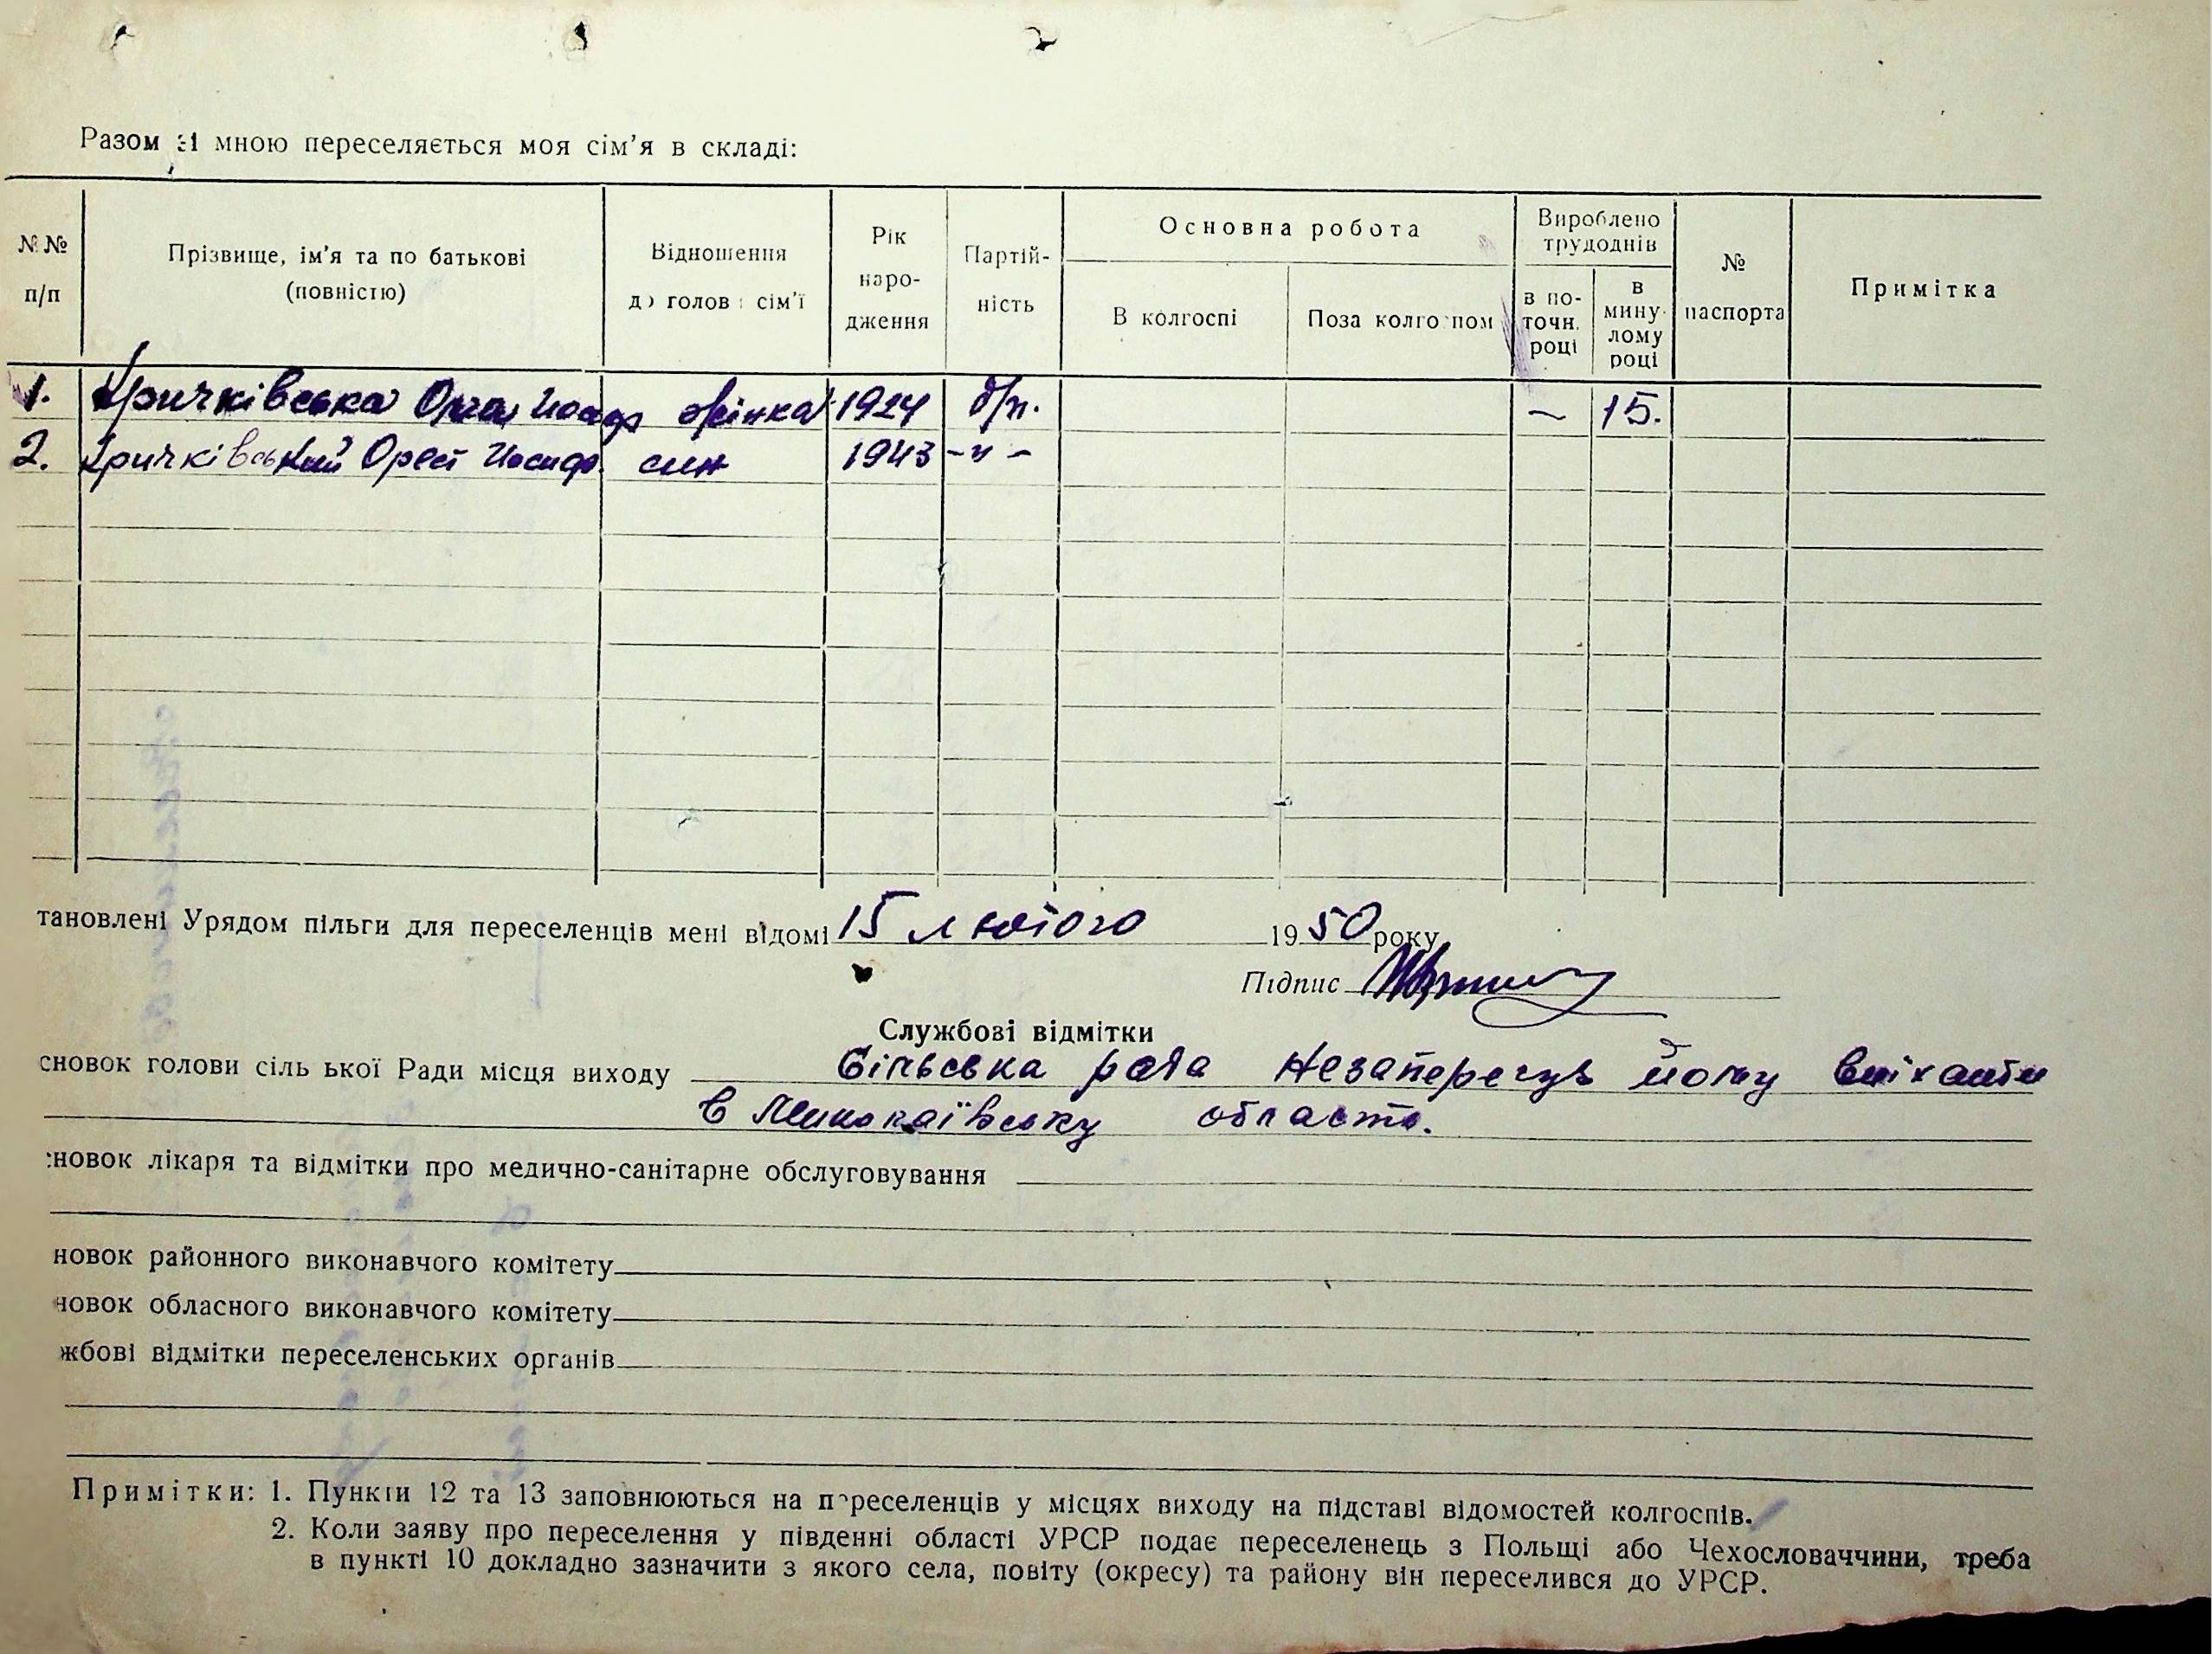 Разом зі мною переселяється моя сім'я в складі:
№№ п/п
Прізвище, ім'я та по батькові (повністю)
Відношення до голови сім'ї
Рік народження
Партійність
Основна робота
В колгоспі
Поза колгоспом
Вироблено трудоднів
в поточн. році
в минулому році
№ паспорта
Примітка
1. Кричківська Ольга Йосифо жінка 1924 б/п. – 15.
2. Кричківський Орест Йосифо. син 1943 -"-
тановлені Урядом пільги для переселенців мені відомі 15 лютого 1950 року
Підпис
Службові відмітки
сновок голови сільської Ради місця виходу Сільська рада незаперечує йому виїхати
в Миколаївську область.
сновок лікаря та відмітки про медично-санітарне обслуговування
новок районного виконавчого комітету
новок обласного виконавчого комітету
жбові відмітки переселенських органів
Примітки: 1. Пункти 12 та 13 заповнюються на переселенців у місцях виходу на підставі відомостей колгоспів.
2. Коли заяву про переселення у південні області УРСР подає переселенець з Польщі або Чехословаччини, треба
в пункті 10 докладно зазначити з якого села, повіту (окресу) та району він переселився до УРСР.